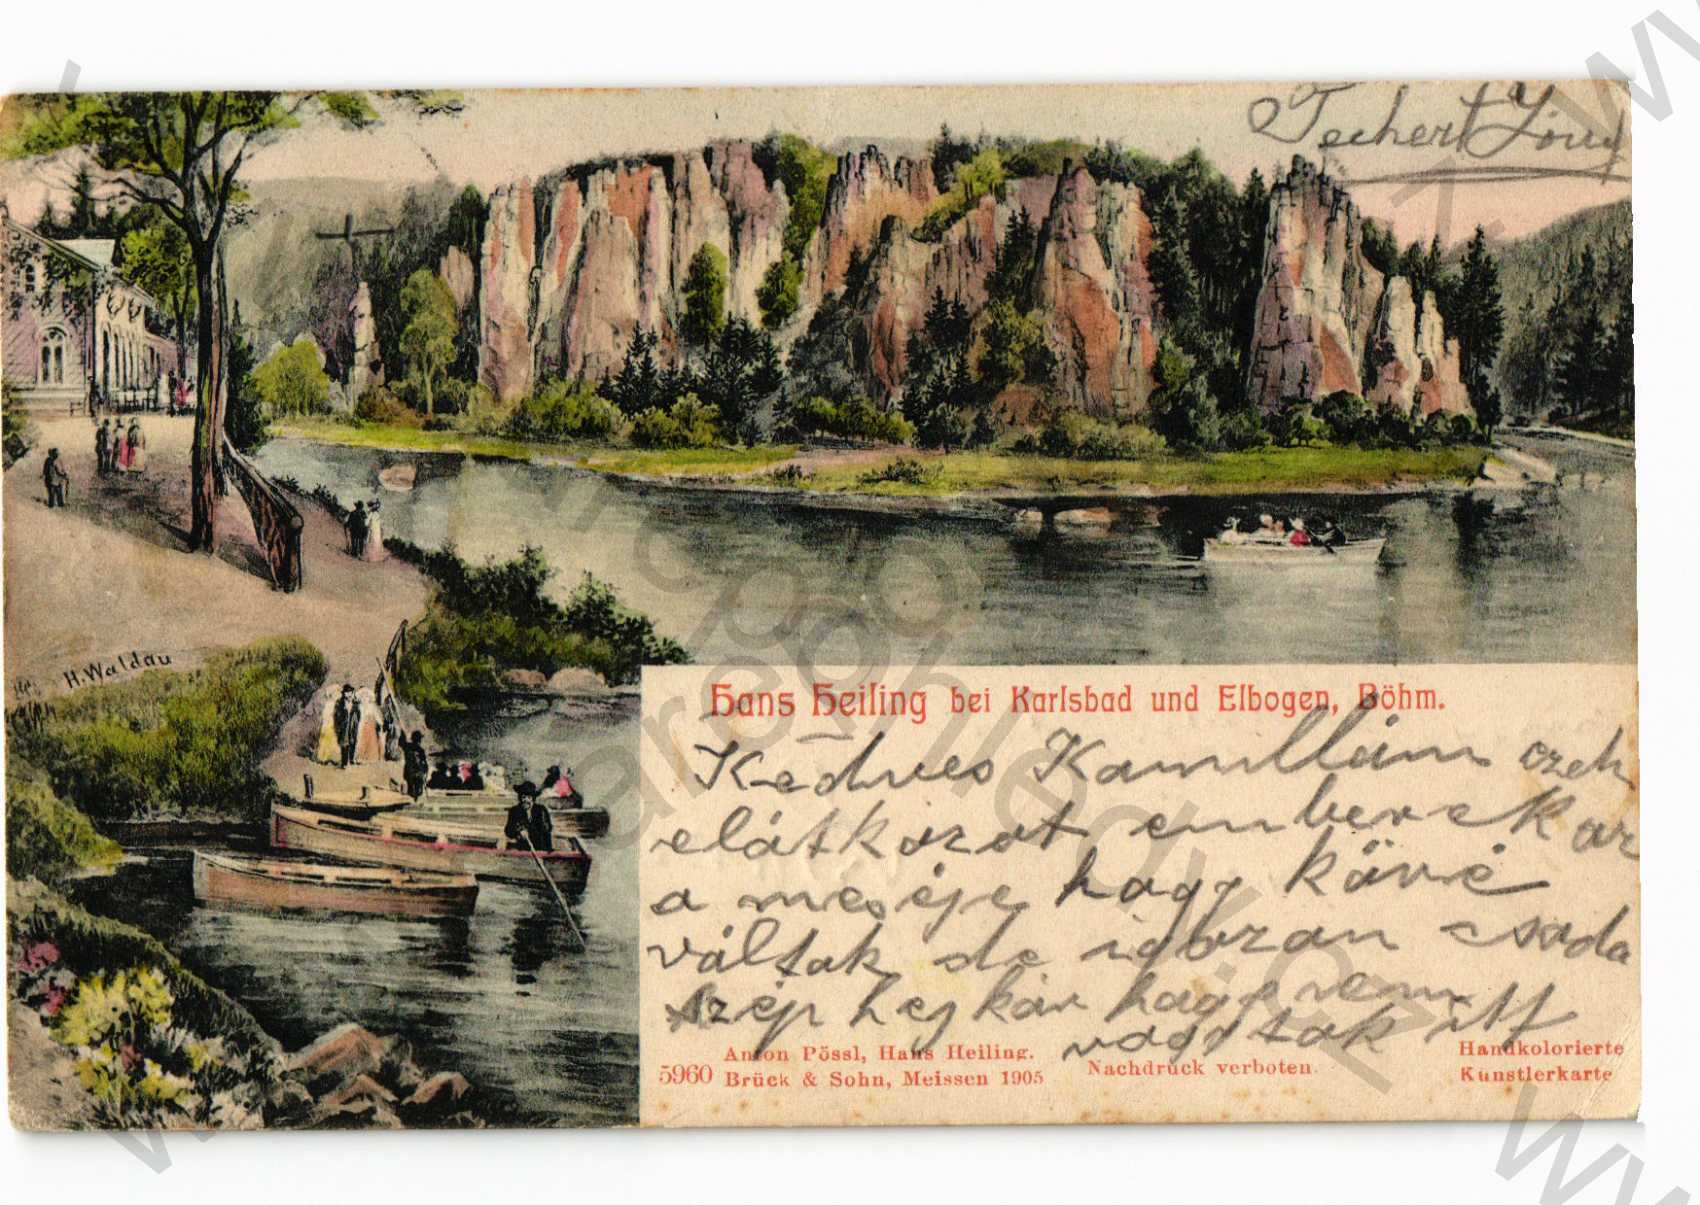 Techert
H. Waldau
Hans Heiling bei Karlsbad und Elbogen, Böhm.
Kedves Kamillám ezek
elátkozot emberek az
a meséje hagy kávé
váltak de igazan csoda
szép hej kár hagy nem
vagytok itt
5960 Anton Pössl, Hans Heiling.
Brück & Sohn, Meissen 1905
Nachdruck verboten.
Handkolorierte
Künstlerkarte